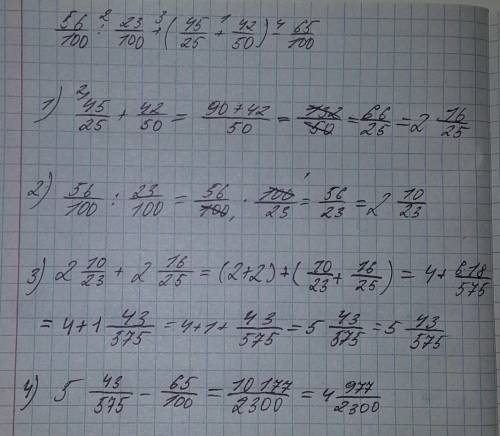 56/100 :² 23/100 +³ (45/25 +¹ 42/50) -⁴ 65/100
1) ²⁾45/25 + 42/50 = 90+42/50 = 132/50 = 66/25 = 2 16/25
2) 56/100 : 23/100 = 56/100 · 100/23 = 56/23 = 2 10/23
3) 2 10/23 + 2 16/25 = (2+2)+(10/23 + 16/25) = 4+ 618/575
= 4+1 43/575 = 4+1+ 43/575 = 5 43/575 = 5 43/575
4) 5 43/575 - 65/100 = 10177/2300 = 4 977/2300